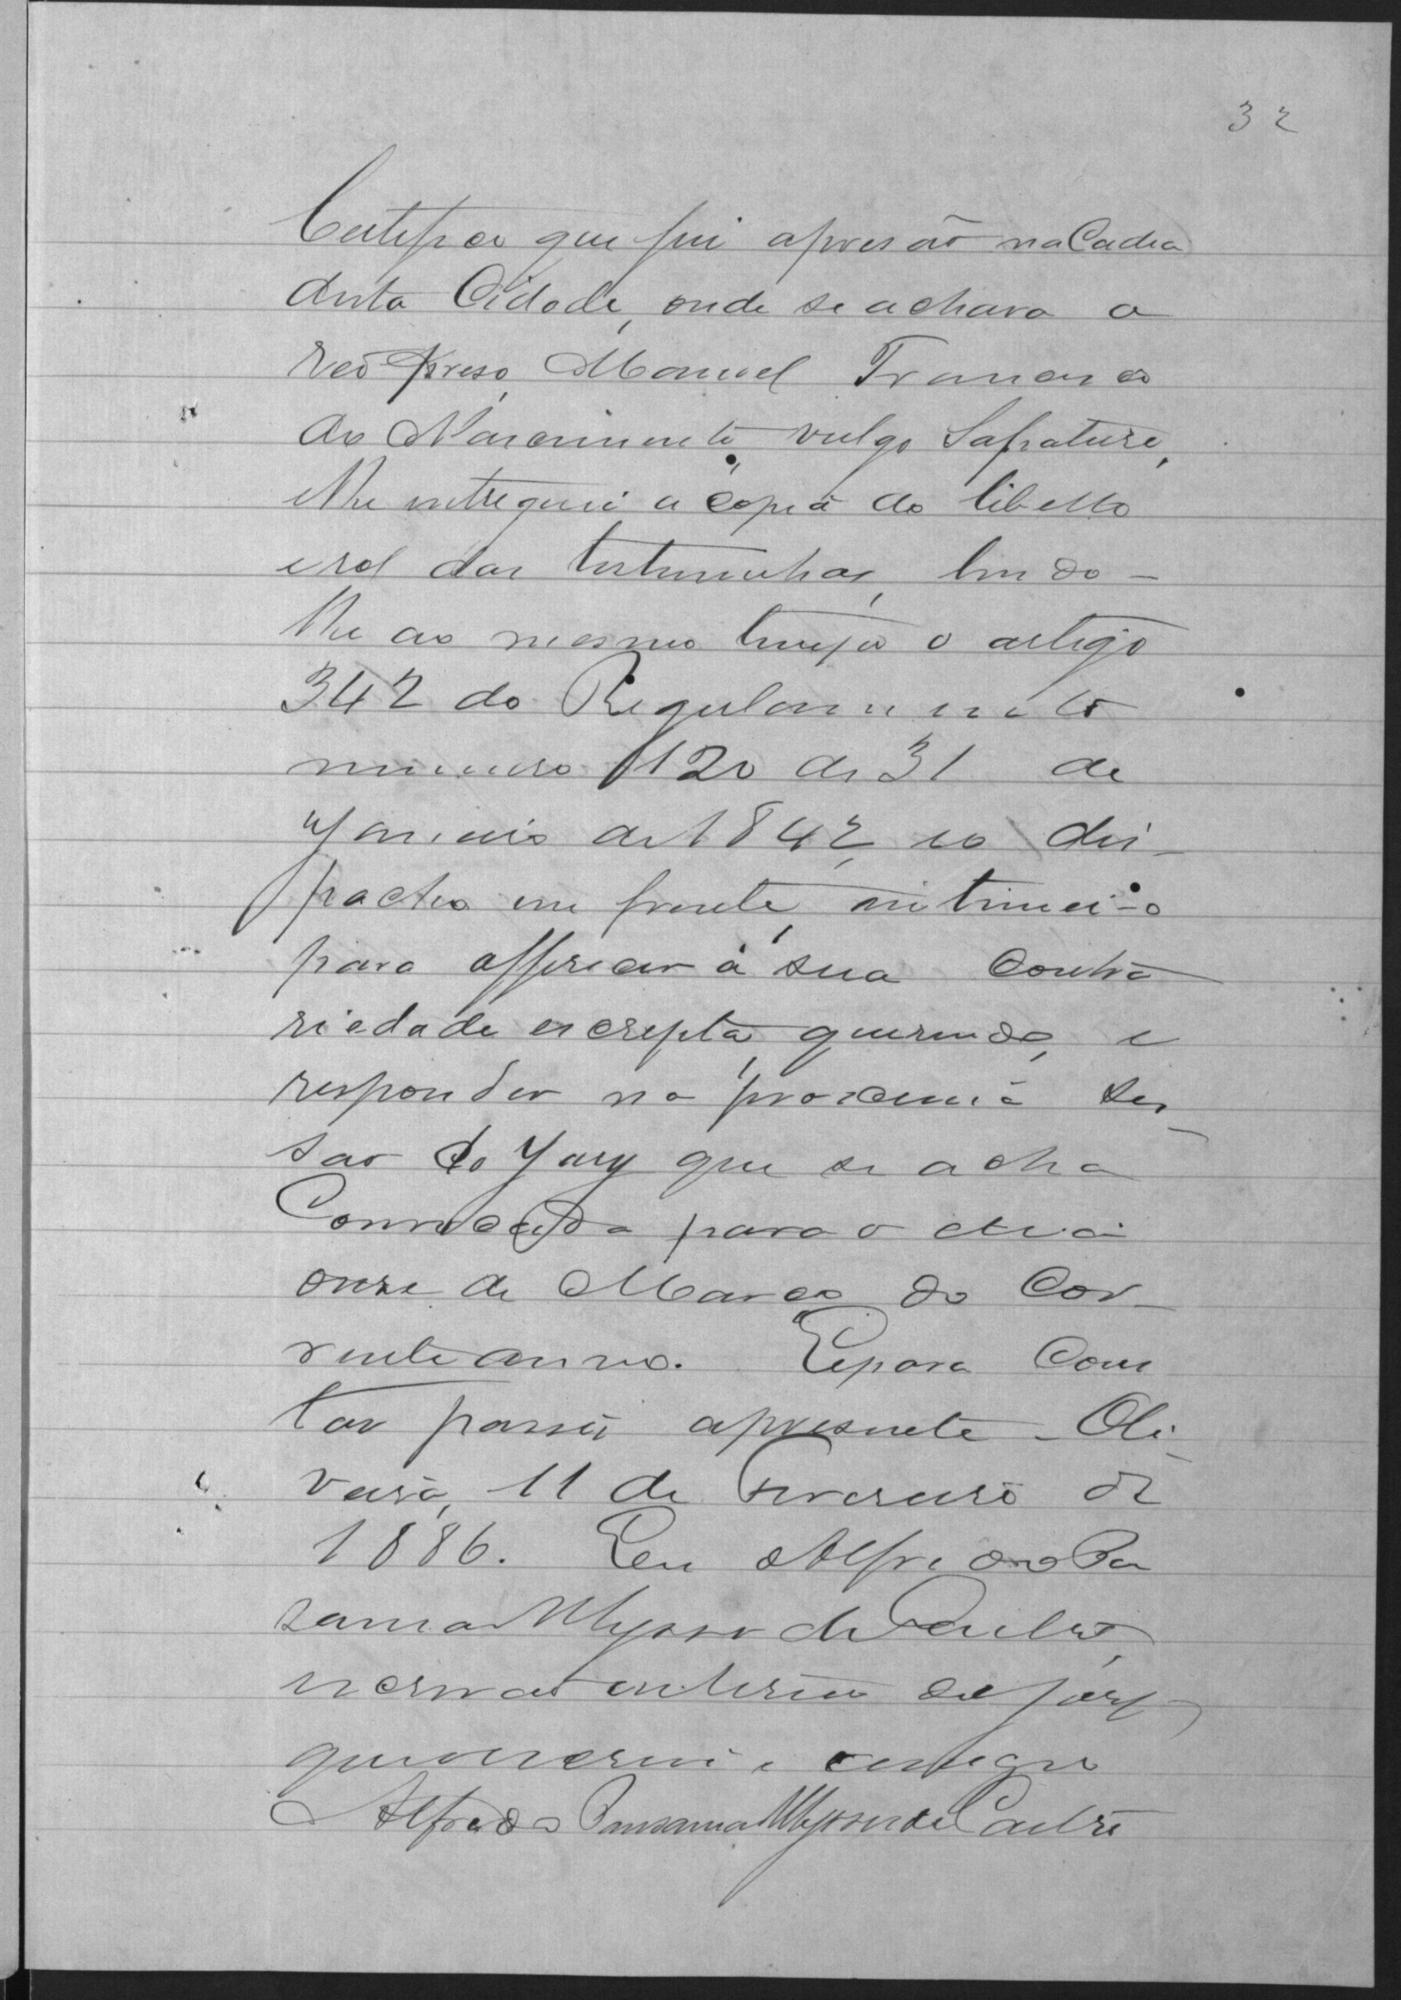 32
Certifico que fui a prisão na Cadea
desta Cidade, onde se achava o
reo preso, Manoel Francisco
do Nascimento vulgo
e lhe entreguei a copia do libello
e rol das testemunhas, lendo-
lhe ao mesmo tempo o artigo
342 do Regulamento
numero 120 de 31 de
Janeiro de 1842, e o des-
pacho em frente, intimei-o
para offerecer a sua contra
riedade escripta, querendo, e
responder na proxima ses-
sao do Jury que se acha
Convocada para o dia
onze de Março do Cor-
rente anno. E para Cons
tar passei a presente. Oli-
veira, 11 de Fevereiro de
1886. Eu Alfredo Pau
sanias de Castro,
escrivão interino do jury
que escrevi e assigno
Alfredo Pausanias de Castro